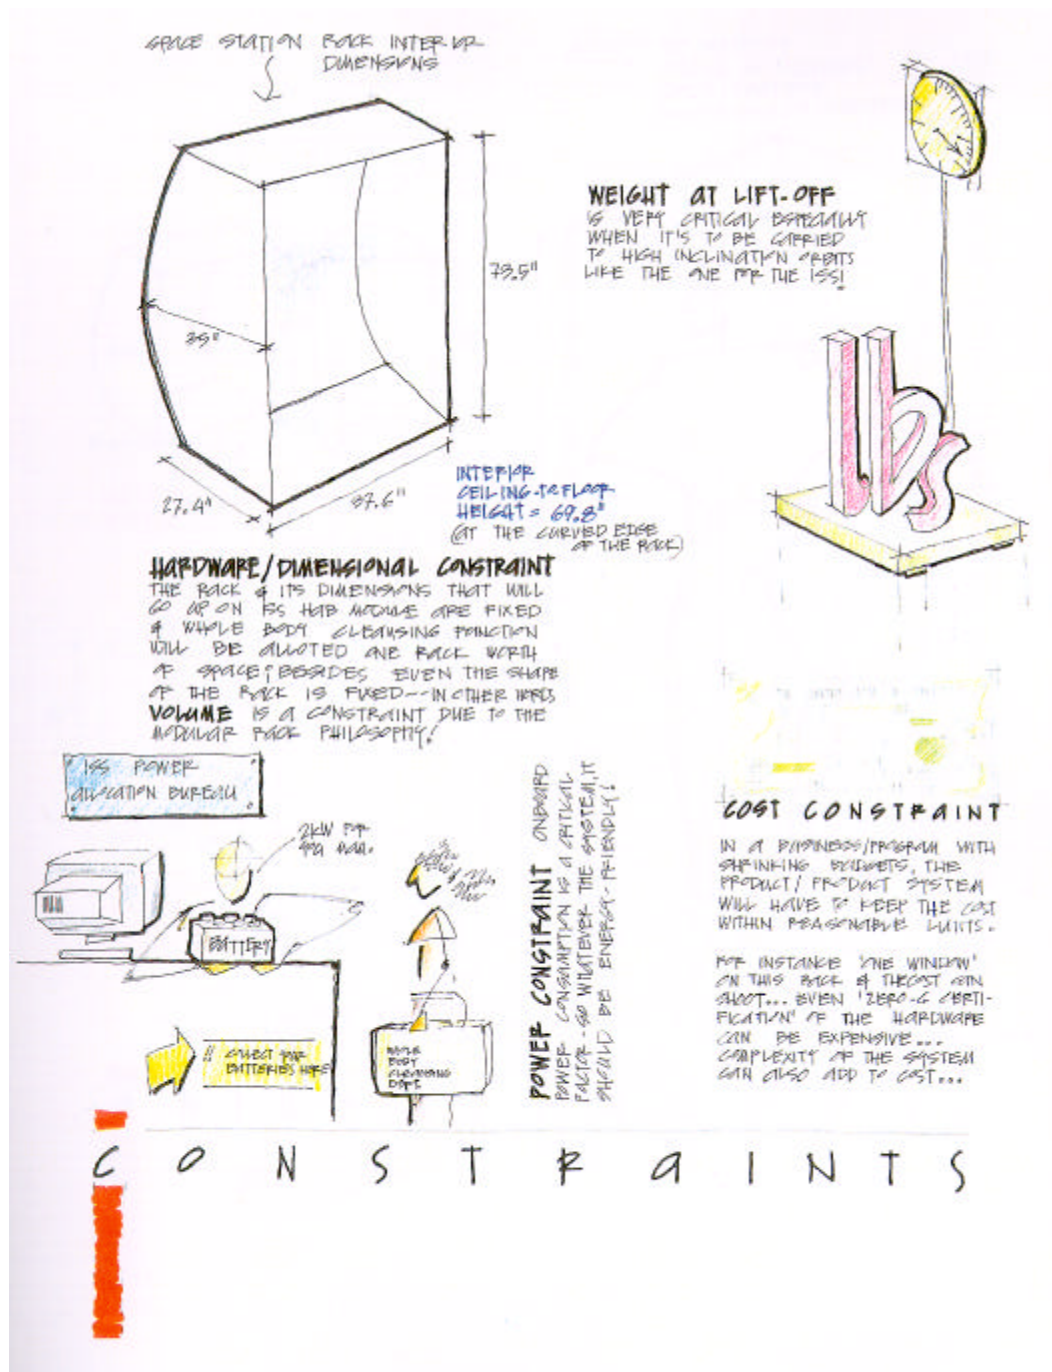 SPACE STATION RACK INTERIOR
DIMENSIONS
73.5"
35"
27.4"
37.6"
INTERIOR
CEILING-TO FLOOR
HEIGHT = 69.8"
(AT THE CURVED EDGE
OF THE RACK)
WEIGHT AT LIFT-OFF
IS VERY CRITICAL ESPECIALLY
WHEN IT'S TO BE CARRIED
TO HIGH INCLINATION ORBITS
LIKE THE ONE FOR THE ISS!
lbs
HARDWARE/DIMENSIONAL CONSTRAINT
THE RACK & ITS DIMENSIONS THAT WILL
GO UP ON ISS HAB MODULE ARE FIXED
& WHOLE BODY CLEANSING FUNCTION
WILL BE ALLOTED ONE RACK WORTH
OF SPACE; BESIDES EVEN THE SHAPE
OF THE RACK IS FIXED--IN OTHER WORDS
VOLUME IS A CONSTRAINT DUE TO THE
MODULAR RACK PHILOSOPHY!
ISS POWER
ALLOCATION BUREAU
2KW FOR
YOU MAM.
BATTERY
!! COLLECT YOUR
BATTERIES HERE
WHOLE
BODY
CLEANSING
DEPT
POWER CONSTRAINT ONBOARD
POWER CONSUMPTION IS A CRITICAL
FACTOR - SO WHATEVER THE SYSTEM, IT
SHOULD BE ENERGY-FRIENDLY!
COST CONSTRAINT
IN A BUSINESS/PROGRAM WITH
SHRINKING BUDGETS, THE
PRODUCT/ PRODUCT SYSTEM
WILL HAVE TO KEEP THE COST
WITHIN REASONABLE LIMITS.
FOR INSTANCE 'ONE WINDOW'
ON THIS RACK & THE COST CAN
SHOOT... EVEN 'ZERO-G CERTI-
FICATION' OF THE HARDWARE
CAN BE EXPENSIVE...
COMPLEXITY OF THE SYSTEM
CAN ALSO ADD TO COST...
CONSTRAINTS